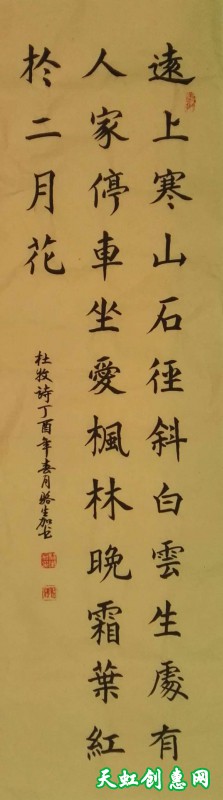 遠上寒山石徑斜白雲生處有
人家停車坐愛楓林晚霜葉紅
於二月花
杜牧詩丁酉年春月
天虹创惠网